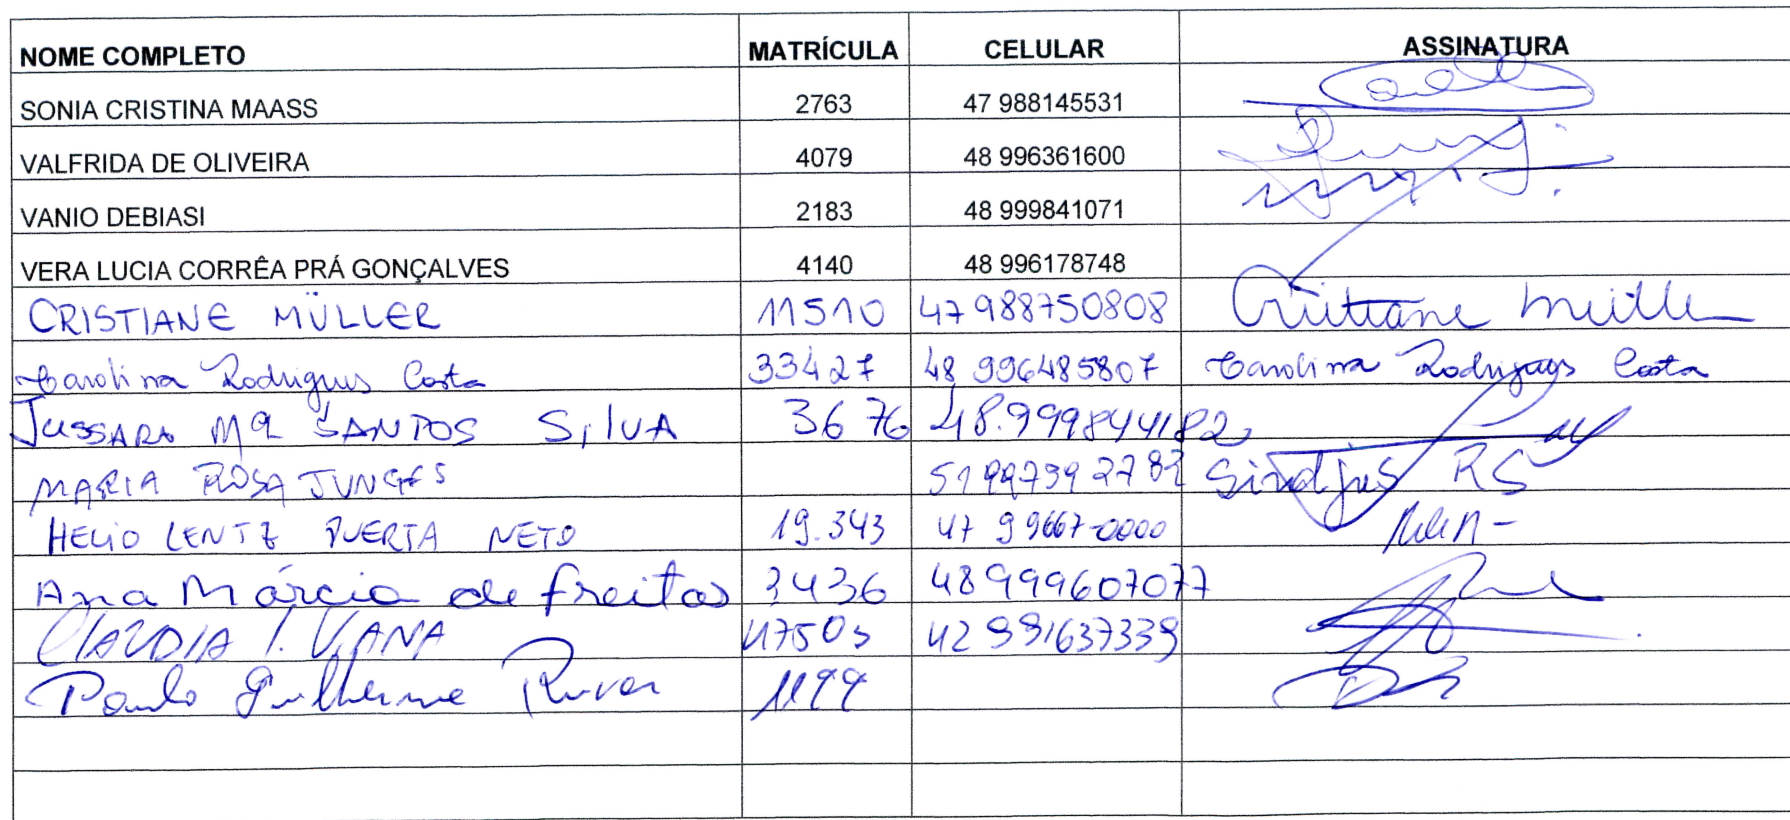 NOME COMPLETO MATRÍCULA CELULAR ASSINATURA
SONIA CRISTINA MAASS 2763 47 988145531
VALFRIDA DE OLIVEIRA 4079 48 996361600
VANIO DEBIASI 2183 48 999841071
VERA LUCIA CORRÊA PRÁ GONÇALVES 4140 48 996178748
CRISTIANE MÜLLER 11510 47 988750808 Cristiane Müller
Carolina Rodrigues Costa 33427 48 996485807 Carolina Rodrigues Costa
JUSSARA Mª SANTOS SILVA 3676 48.999844182
MARIA ROSA JUNGES 51 997392782 Sindjus RS
HELIO LENTZ PUERTA NETO 19.343 47 99667-0000
Ana Márcia de Freitas 3436 48 999607077
CLAUDIA I. VIANA 42 991637339
Paulo Guilherme